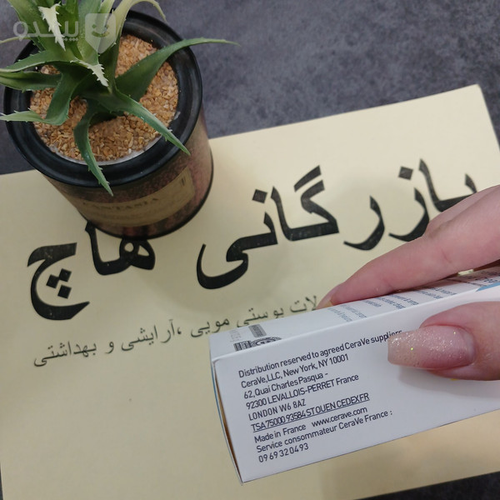 بازرگانی هاچ
لات پوستی مویی ،آرایشی و بهداشتی
Distribution reserved to agreed CeraVe suppliers
CeraVe,LLC, New York, NY 10001
62,Quai Charles Pasqua -
92300 LEVALLOIS-PERRET France
LONDON W6 8AZ
TSA 75000 93584 ST OUEN CEDEX FR
Made in France www.cerave.com
Service consommateur CeraVe France :
0969320493